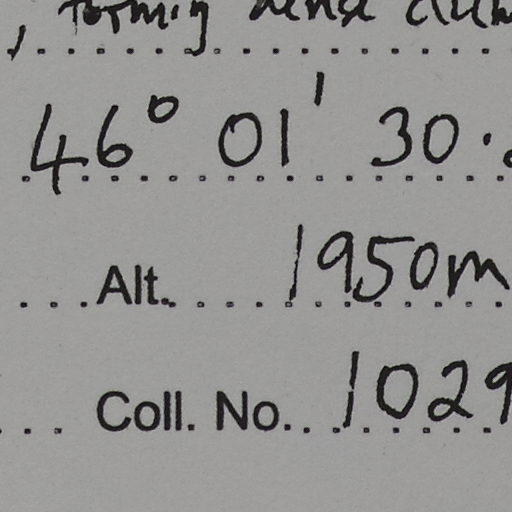 , forming dense
46° 01' 30.
Alt. 1950m
Coll. No. 1029